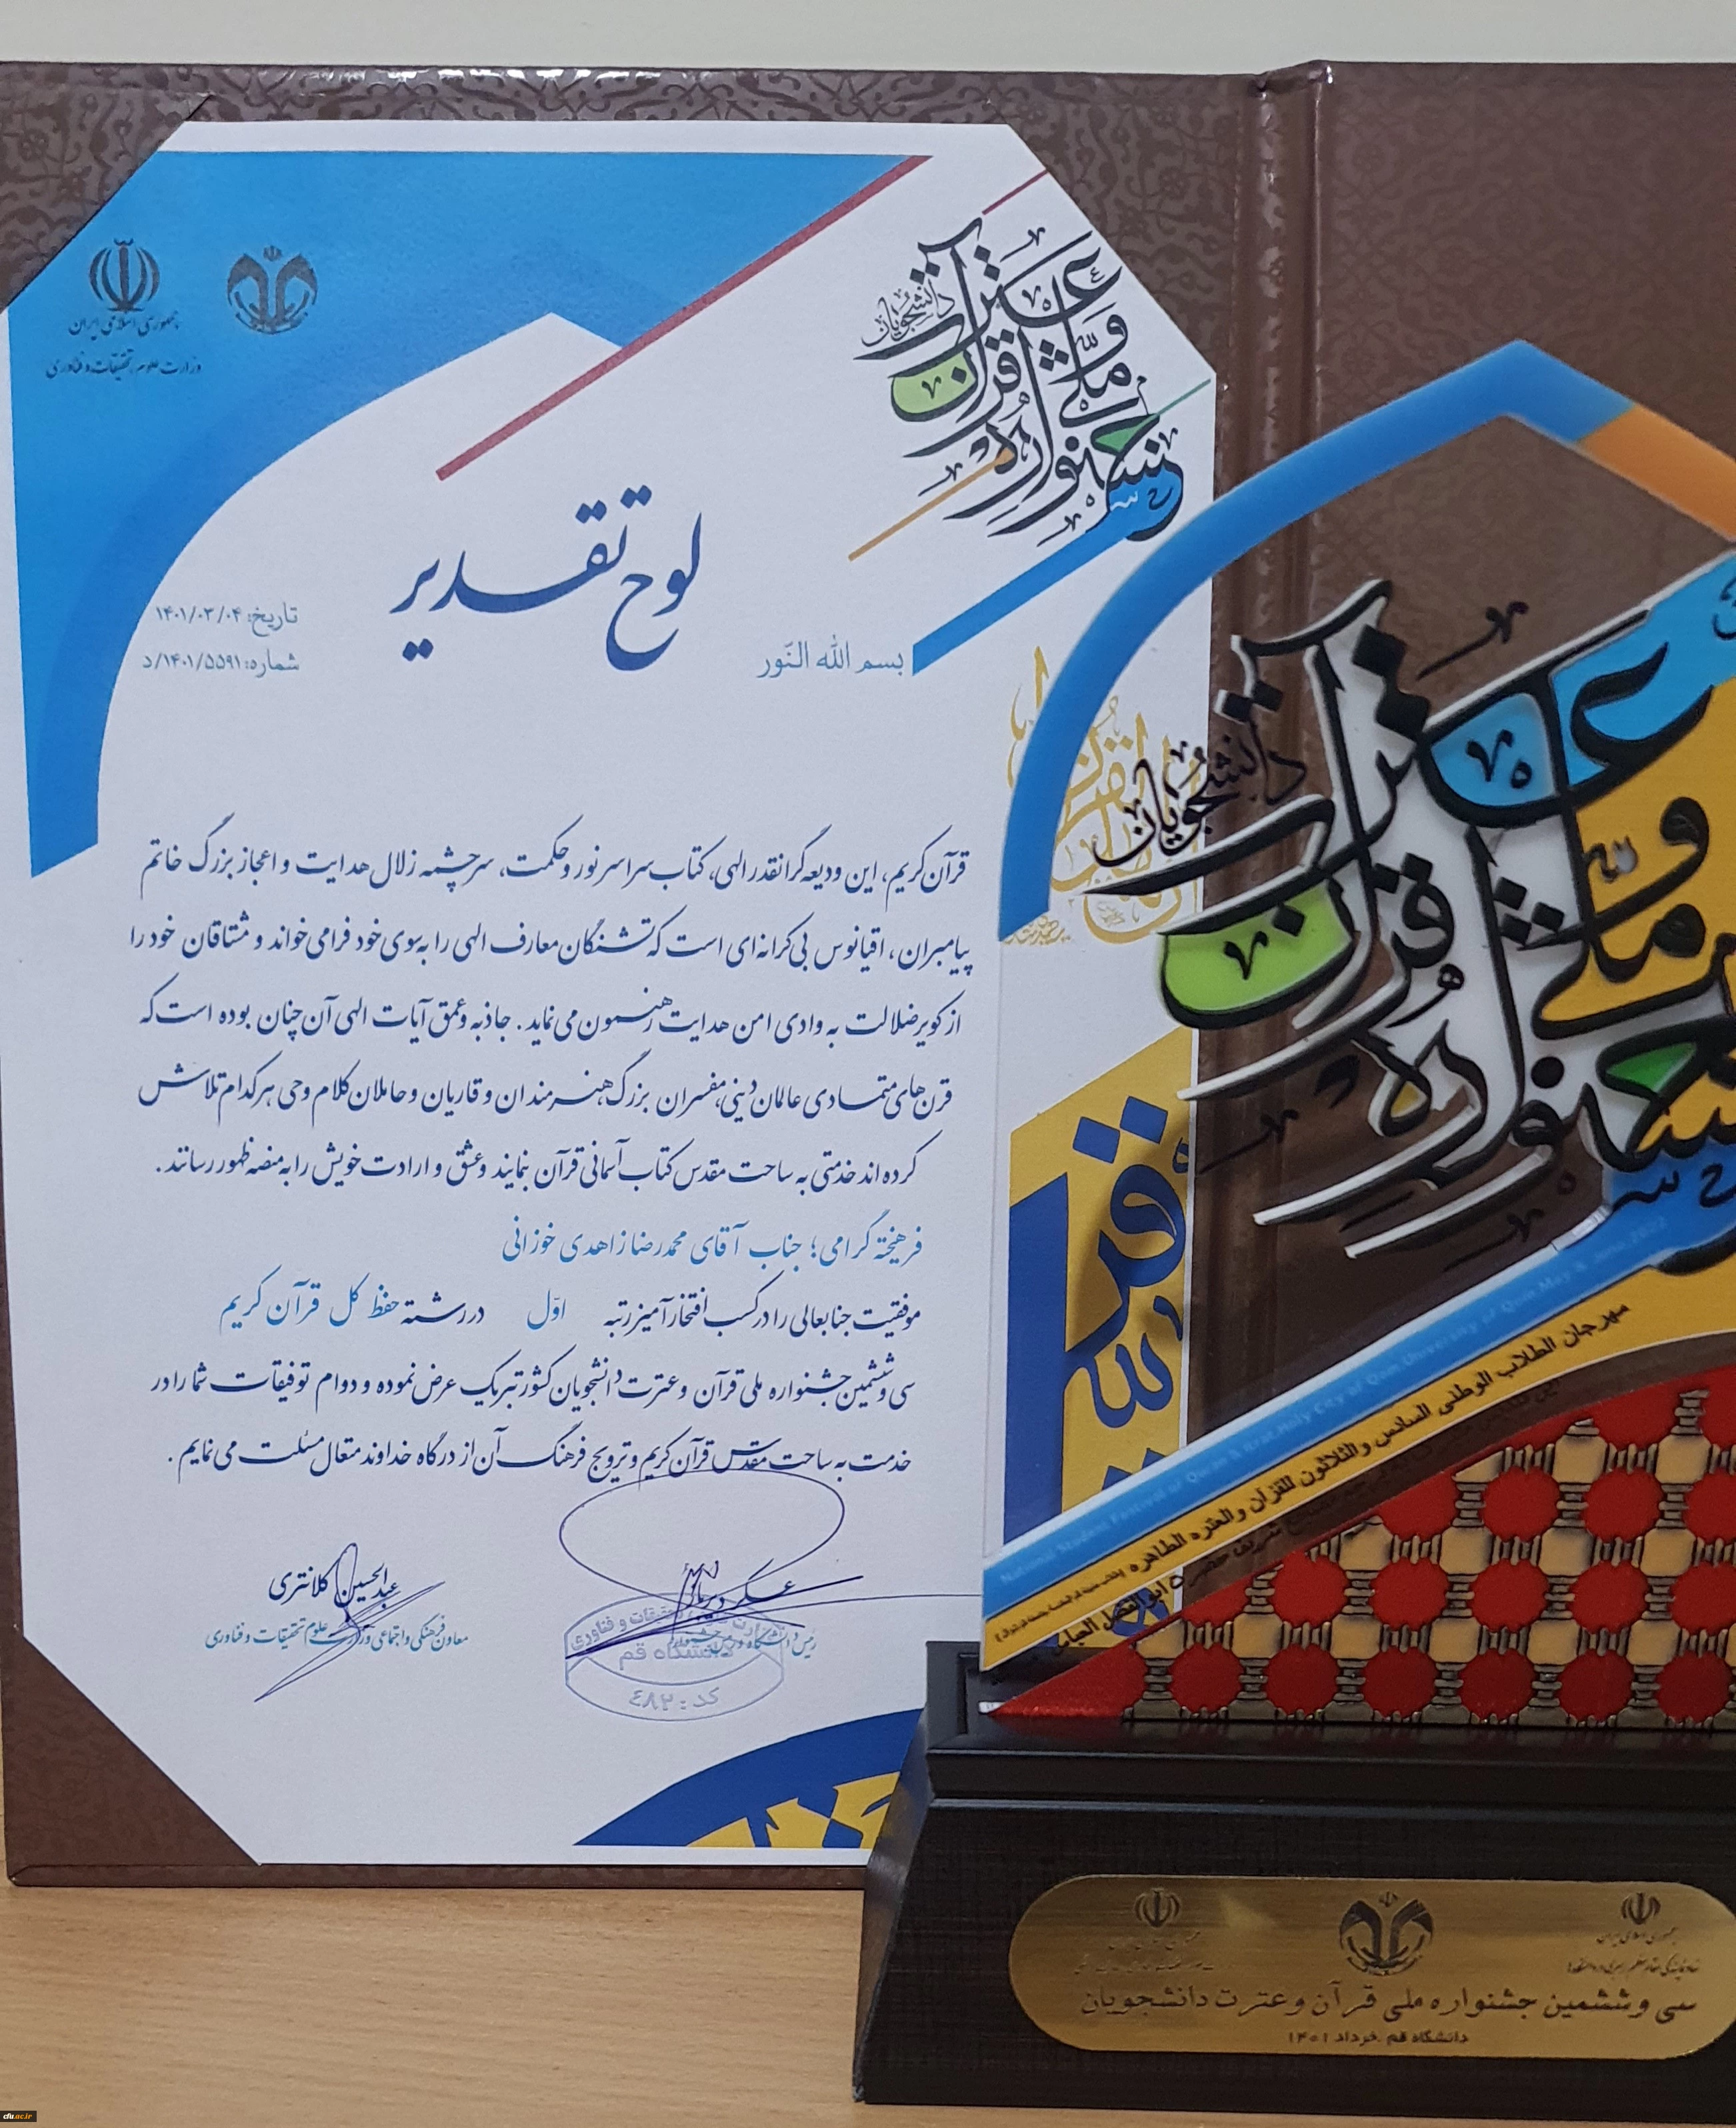 جمهوری اسلامی ایران
وزارت علوم، تحقیقات و فناوری
جشنواره ملی قرآن و عترت دانشجویان
لوح تقدیر
تاریخ: ۱۴۰۱/۰۳/۰۴
شماره: ۱۴۰۱/۵۵۹۱/د
بسم الله النّور
قرآن کریم، این ودیعه گرانقدر الهی، کتاب سراسر نور و حکمت، سرچشمه زلال هدایت و اعجاز بزرگ خاتم
پیامبران، اقیانوس بی کرانه ای است که تشنگان معارف الهی را به سوی خود فرا می خواند و مشتاقان خود را
از کویر ضلالت به وادی امن هدایت رهنمون می نماید. جاذبه و عمق آیات الهی آن چنان بوده است که
قرن های متمادی عالمان دینی، مفسران بزرگ هنرمندان و قاریان و حاملان کلام وحی هر کدام تلاش
کرده اند خدمتی به ساحت مقدس کتاب آسمانی قرآن بنمایند و عشق و ارادت خویش را به منصه ظهور رسانند.
فرهیخته گرامی؛ جناب آقای محمدرضا زاهدی خوزانی
موفقیت جنابعالی را در کسب افتخارآمیز رتبه اوّل در رشته حفظ کل قرآن کریم
سی و ششمین جشنواره ملی قرآن و عترت دانشجویان کشور تبریک عرض نموده و دوام توفیقات شما را در
خدمت به ساحت مقدس قرآن کریم و ترویج فرهنگ آن از درگاه خداوند متعال مسئلت می نمایم.
عسگر دیرباز
رئیس دانشگاه و دبیر جشنواره
دانشگاه قم
کد: ٤٨٢
عبدالحسین کلانتری
معاون فرهنگی و اجتماعی وزارت علوم تحقیقات و فناوری
جشنواره ملی قرآن و عترت دانشجویان
National Student Festival of Quran & Itrat, Holy City of Qom, University of Qom, May & June, 2022
مهرجان الطلاب الوطنی السادس والثلاثون للقرآن والعتره الطاهره
جمهوری اسلامی ایران
سی و ششمین جشنواره ملی قرآن و عترت دانشجویان
دانشگاه قم .خرداد ۱۴۰۱
cfu.ac.ir